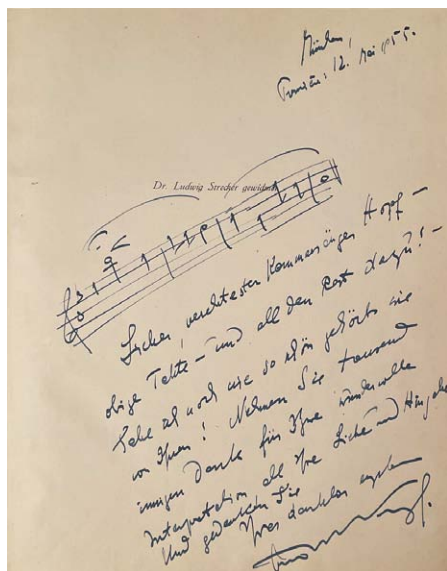 München,
Première: 12. Mai 1955.
Dr. Ludwig Strecker gewidmet
Lieber, verehrtester Kammersänger Hopf –
obige Takte – und all den Rest dazu! –
habe ich noch nie so schön gehört wie
von Ihnen! Nehmen Sie tausend
innigen Dank für Ihre wundervolle
Interpretation all Ihre Liebe und Hingabe
Und gedenken Sie
Ihres dankbar ergebenen